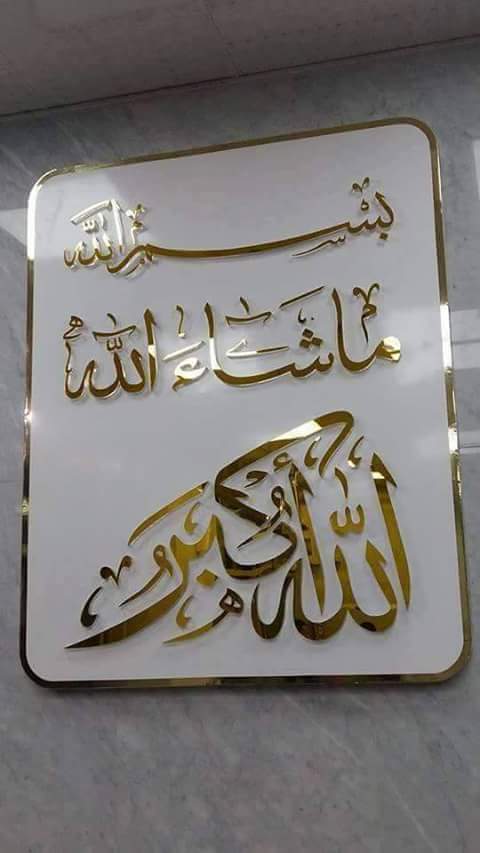 بسم الله
ما شاء الله
الله أكبر